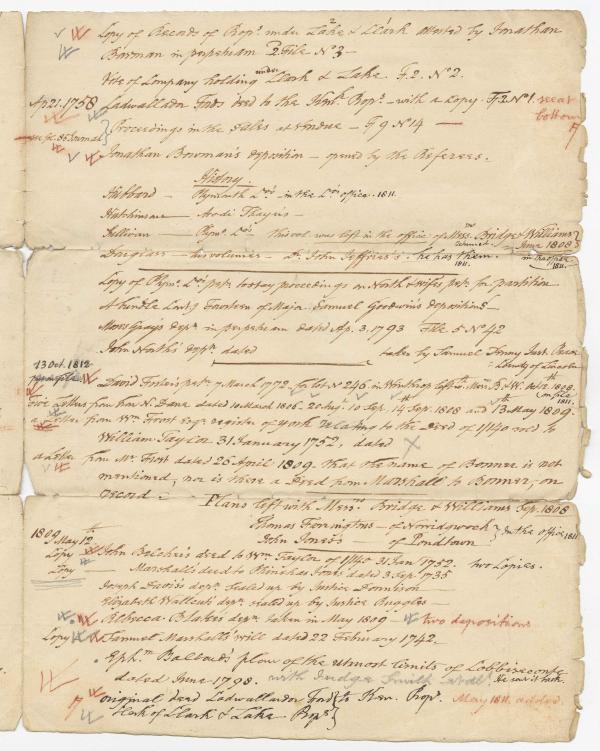 Copy of Records of Prop.s under Lake & Clark attested by Jonathan
Bowman in perpetuam 2 File No 3
Vote of Company holding under Clark & Lake F. 2. No 2.
Ap 21. 1758 Cadwallador Fords deed to the Kenk. Prop.s - with a Copy F 2 No 1. see at bottom
see fol. 86 Journal Proceedings in the Sales at Vendue - F 9 No 14
Jonathan Bowman's deposition - opened by the Referees.
History
Hubbard - Plymouth Co.s in the Co.s office. 1811.
Hutchinson - Avodi Thayer's -
Sullivan - Plym.o Co.s This vol. was left in the office of Mess.rs Bridge & Williams
June 1808
Douglass - his volumes - Dr. John Jeffries's he has them. 1811.
in the office 1811.
Copy of Plym.o Co. pet.n to stay proceedings on North & wifes pet.n for partition
A bundle Cont.g Fourteen of Major Samuel Goodwins depositions
Moses Grays dep.n in perpetuam dated Ap. 3. 1793 File 5 No 42
John North's dep.n dated taken by Samuel Denny Just. Peace
County of Lincoln
13 Oct. 1812
David Foster's pet.n 7 March 1772. for lot No 246 in Winthrop left with Mess. B. & W. Oct. 2. 1808.
on file 1811.
Five Letters from hon N. Dane dated 10 March 1806. 20 Aug.t 10 Sep. 14th Sep. 1808 and 13th May 1809.
a Letter from Wm Frost esqr register of York relating to the Deed of 1740 sold to
William Taylor 31 January 1752, dated
a Letter from Mr. Frost dated 26 April 1809. that the name of Bonner is not
mentioned, nor is there a Deed from Marshall to Bonner, on
record -
Plans left with Mess.rs Bridge & Williams Sep. 1808
Thomas Fonningtons - of Norridgwock
John Jones's - of Pondtown
In the office 1811
1809 May 12th
Copy John Belcher's deed to Wm Taylor of 1/140 31 Jan.y 1752. two Copies.
Copy Marshall's deed to Phinehas Jones dated 3 Sep. 1735
Joseph Davis's dep.n sealed up by Justice Donnison -
Elizabeth Wallcuts dep.n sealed up by Justice Ruggles -
Rebecca Blakes dep.n taken in May 1809 - two depositions
Copy Samuel Marshall's will dated 22 February 1742.
Eph.m Ballard's plan of the utmost limits of Cobbiseconte
dated June 1798. with Judge Smith
He sent it back.
original deed Cadwallador Ford to Ken. Prop.s May 1811. added.
Clerk of Clark & Lake Prop.s